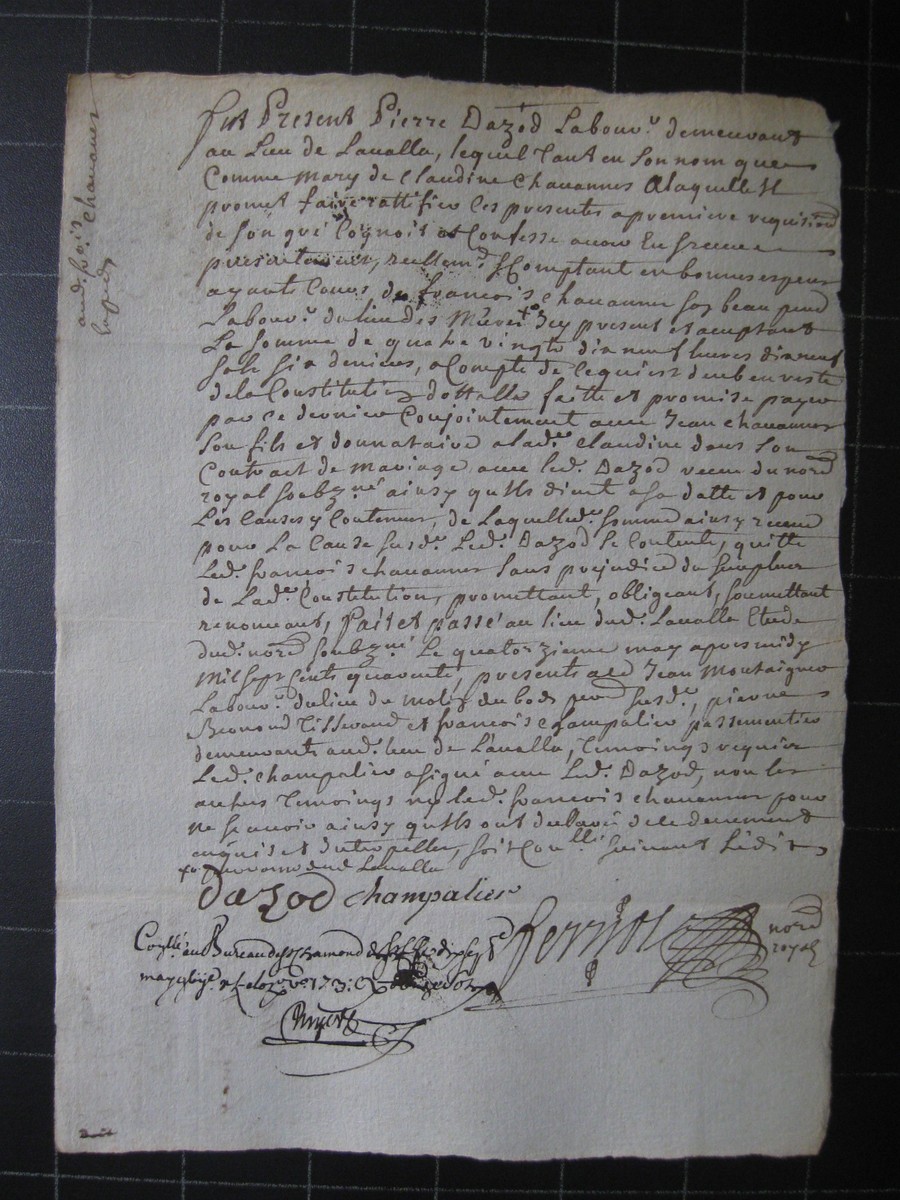 fut Present Pierre Dazod Labour.r demeurant
au Lieu de Lavalla, lequel tant en son nom que
Comme Mary de Claudine Chauannes a laquelle Il
promet faire rattifier Ces presentes a premiere requisi.on
de son gré Cognois et Confesse auoir En Receu
presentement, reellem.t & Comptant en bonnes especes
ayants Cours de francois Chauannes son beau pere
Labour.r du lieu des Icy present et acceptant
La somme de quatre vingts dix neuf liures dix neuf
sols six deniers, a Compte de Ce qui est deub en reste
de la Constitution dottalle faitte et promise payer
par Ce dernier Conjointement auec Jean Chauannes
son fils et donnataire a lad.e Claudine dans son
Contract de Mariage auec led. Dazod receu du no.re
royal soubz.né ainsy qu'ils dient a sa datte et pour
Les Causes y Contenues, de Laquelle d.e somme ainsy receue
pour La Cause susd.e Led. Dazod se Contente, quitte
Led. francois chauannes sans prejudice du surplus
de Lad.e Constitution, promettant, obligeant, soumettant
renonceant, fait et passé au lieu dud. Lavalla Etude
dud. no.re soubz.né Le quatorzieme may apres midy
Mil sept cents quarante, presents Jean Montaigner
Labour.r du lieu de du bots susd., pierre
Tisserand et francois Champalier passementier
demeurants aud. lieu de Lavalla, temoings requis
Led. champalier a signé auec Led. Dazod, non les
autres temoings ny led. francois chauannes pour
ne scauoir ainsy qu'ils ont declaré de ce deuement
enquis et Interpellés, soit Con.llé suiuant L'édit
Lavalla
Dazod Champalier
ferriol no.re
royal
Con.llé au Bureau de St Chamond
may
aud. fr.ois Chauannes